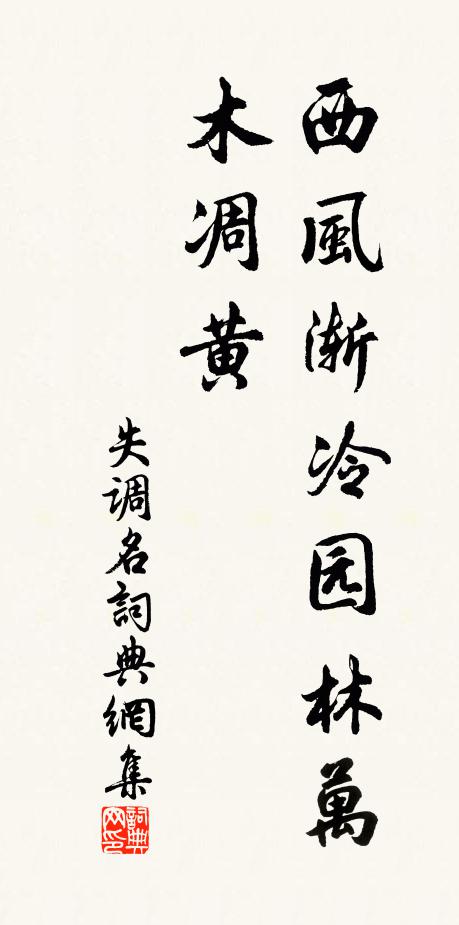 西風渐冷园林萬
木凋黄
失调名詞典網集
詞典网印